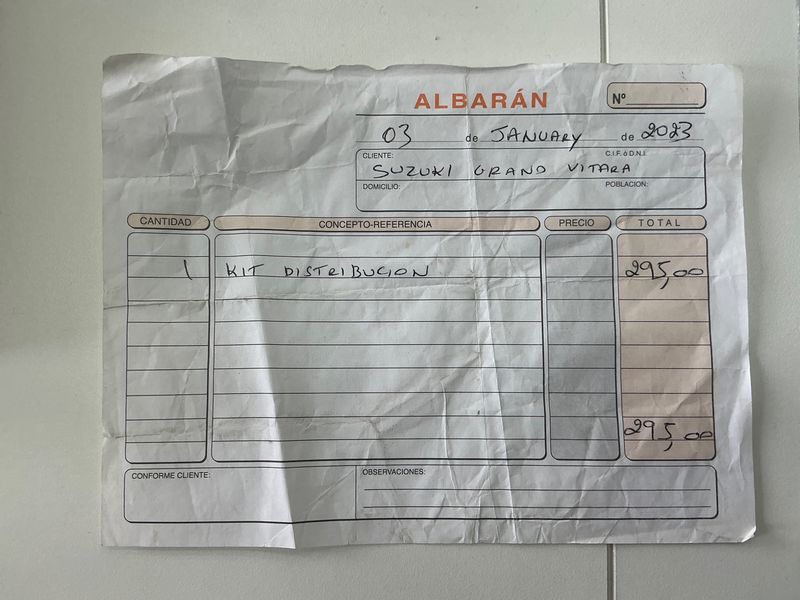 ALBARÁN
Nº
03 de JANUARY de 2023
CLIENTE: C.I.F. ó D.N.I.
SUZUKI GRAND VITARA
DOMICILIO: POBLACION:
CANTIDAD CONCEPTO-REFERENCIA PRECIO TOTAL
1 KIT DISTRIBUCION 295,00
295,00
CONFORME CLIENTE: OBSERVACIONES: